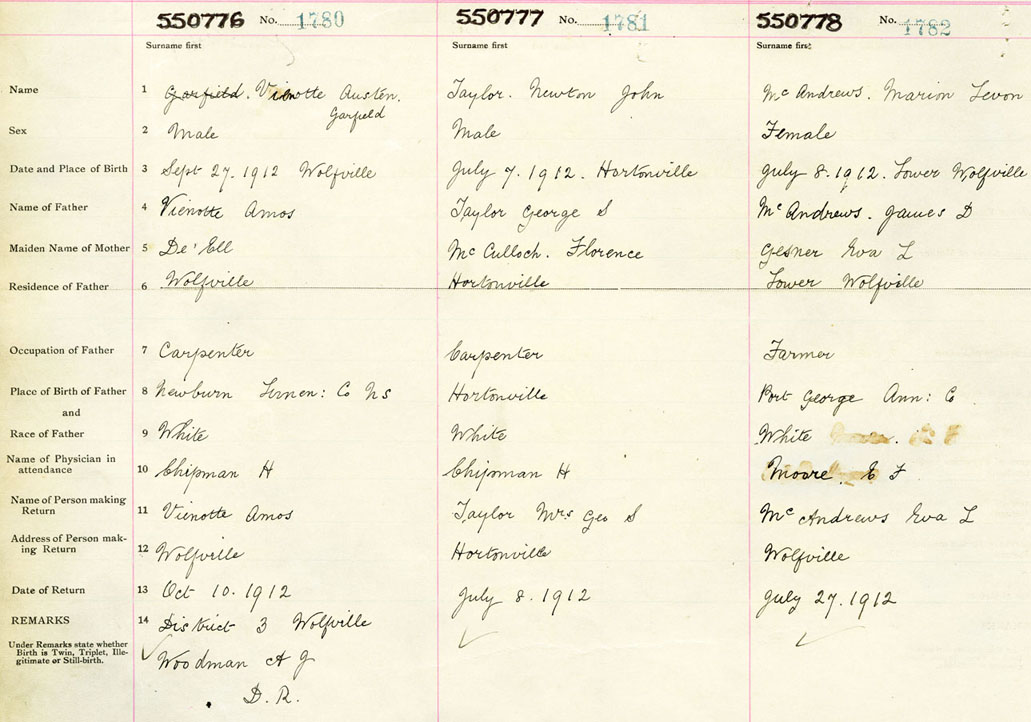 550776 No. 1780 550777 No. 1781 550778 No. 1782
Surname first Surname first Surname first
Name 1 Garfield. Vienotte Austen. Taylor. Newton John Mc Andrews. Marion Levon
Garfield
Sex 2 Male Male Female
Date and Place of Birth 3 Sept 27. 1912 Wolfville July 7. 1912. Hortonville July 8. 1912. Lower Wolfville
Name of Father 4 Vienotte Amos Taylor George S Mc Andrews. James D
Maiden Name of Mother 5 De'Ell Mc Culloch. Florence Gesner Eva L
Residence of Father 6 Wolfville Hortonville Lower Wolfville
Occupation of Father 7 Carpenter Carpenter Farmer
Place of Birth of Father 8 Newburn Lunen: Co Ns Hortonville Port George Ann: C
and
Race of Father 9 White White White
Name of Physician in
attendance 10 Chipman H Chipman H Moore. E F
Name of Person making
Return 11 Vienotte Amos Taylor Mrs Geo S Mc Andrews Eva L
Address of Person mak-
ing Return 12 Wolfville Hortonville Wolfville
Date of Return 13 Oct 10. 1912 July 8. 1912 July 27. 1912
REMARKS 14 District 3 Wolfville
Under Remarks state whether
Birth is Twin, Triplet, Ille-
gitimate or Still-birth.
Woodman A J
D. R.